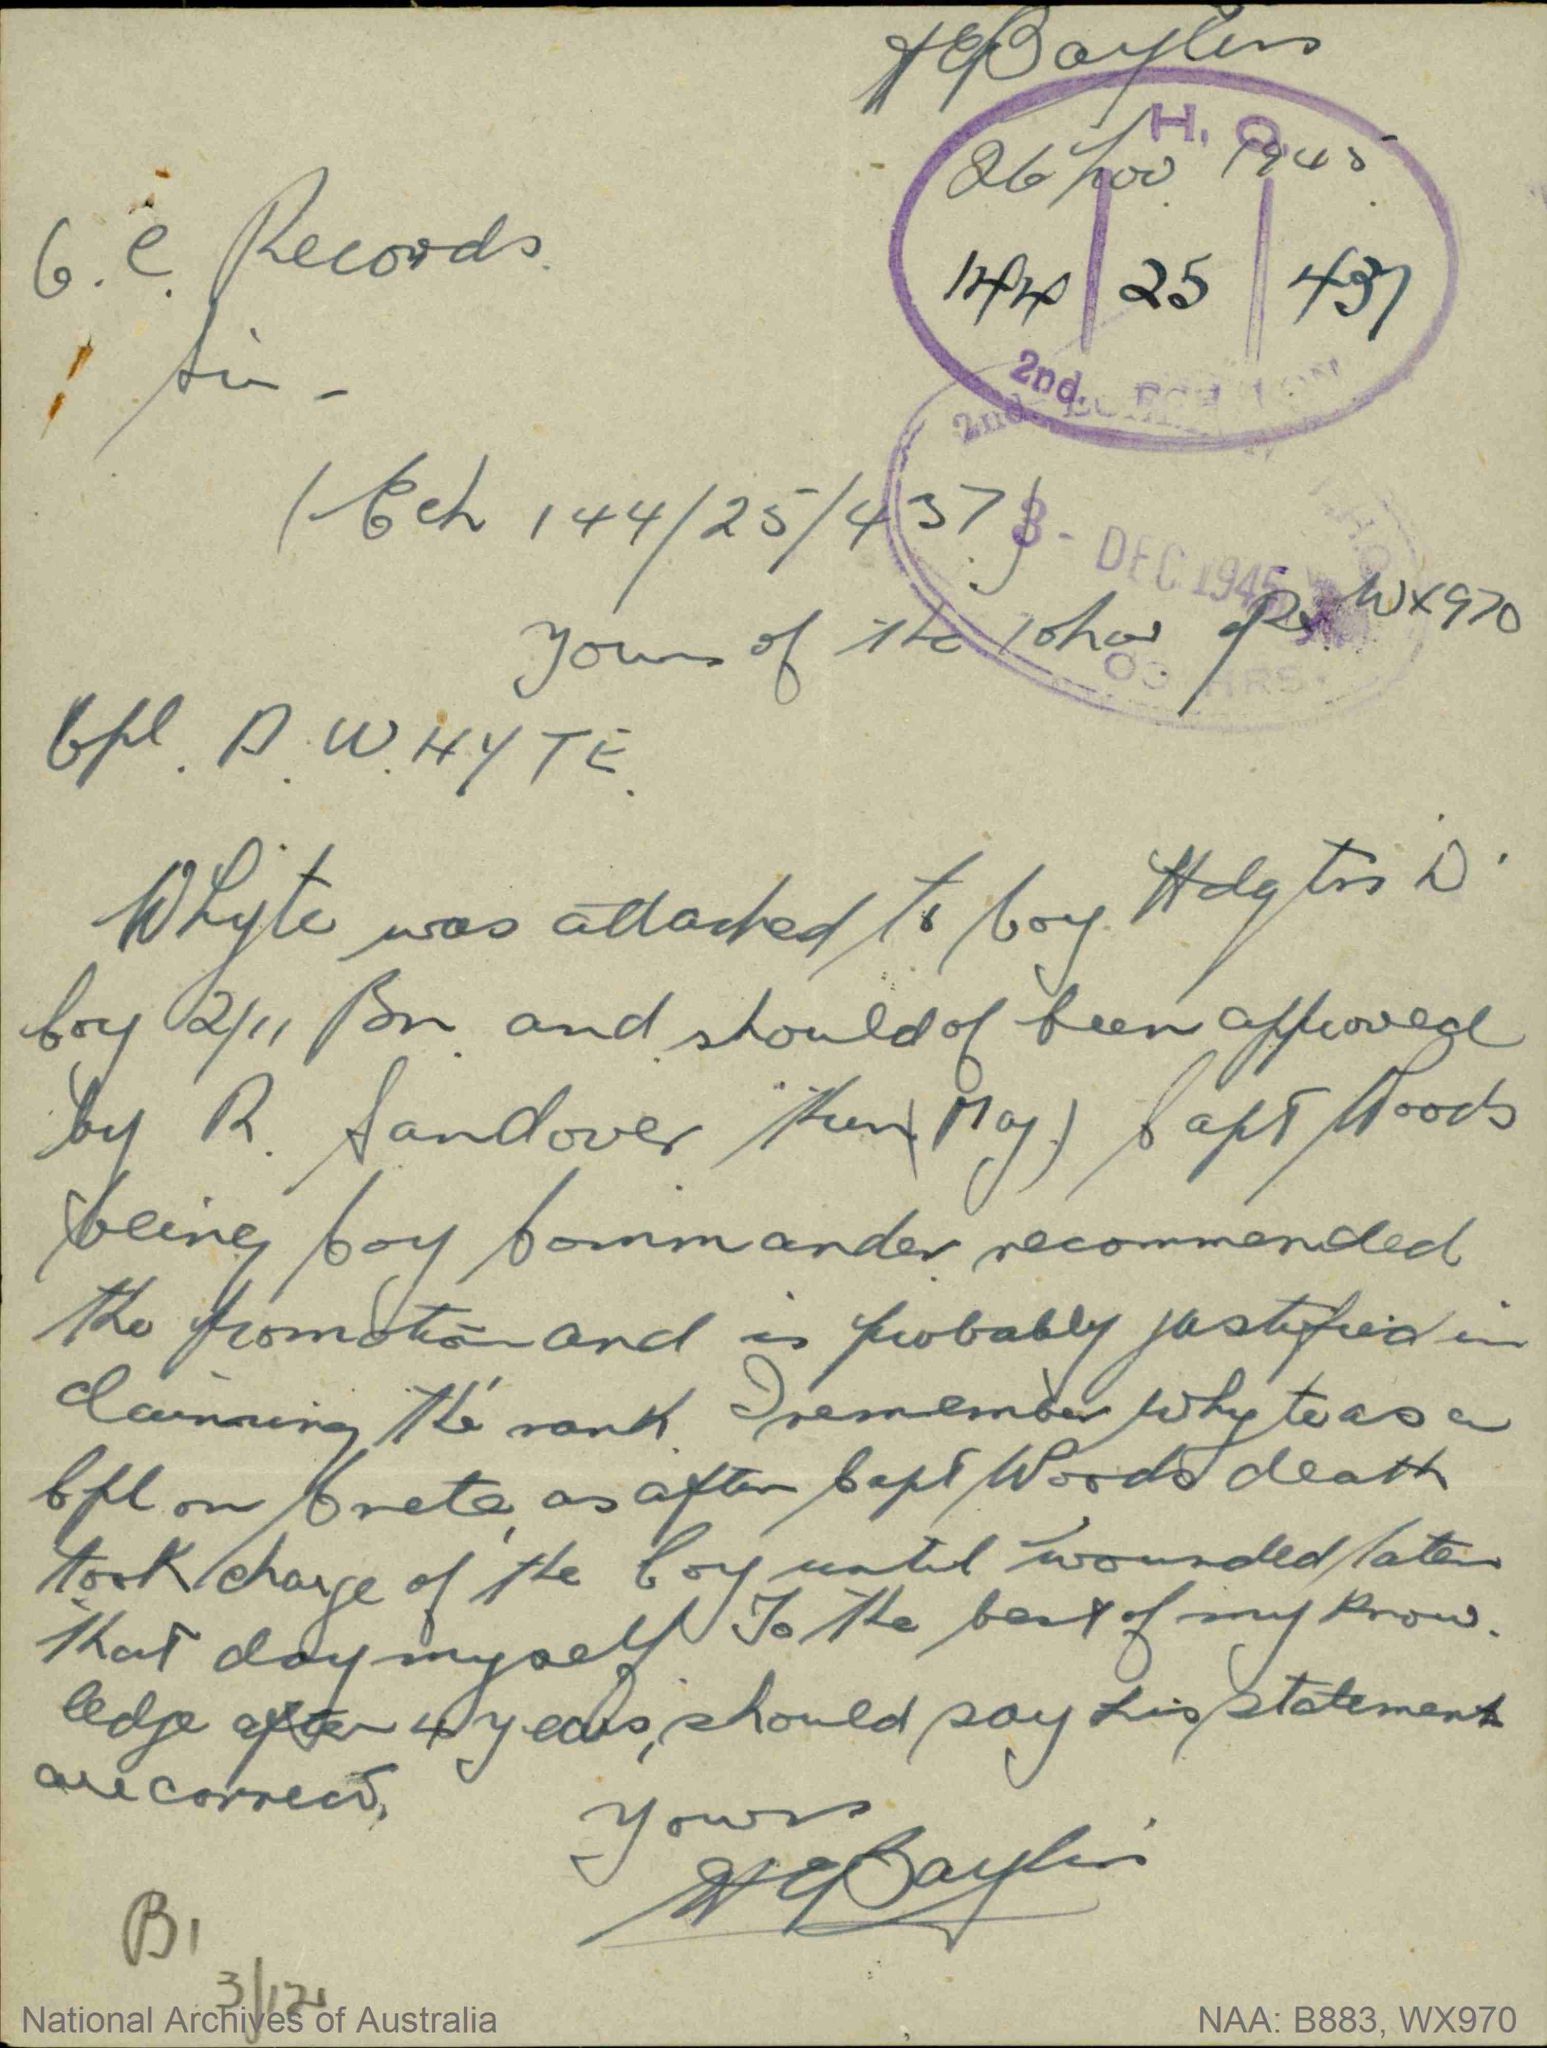 H E Baylis
H. Q.
26 Nov 1945
144 25 437
2nd. ECHELON
O. C. Records.
Sir -
(Ech 144/25/437)
2nd.
3 - DEC 1945
HRS
Yours of the Nov Re WX970
Cpl. D. WHYTE.
Whyte was attached to Coy. Hdqtrs 'D'
Coy 2/11 Bn and should of been approved
by R. Sandover then (Maj) Capt Woods
being Coy Commander recommended
the promotion and is probably justified in
claiming the rank. I remember Whyte as a
Cpl on Crete, as after Capt Woods death
took charge of the Coy until wounded later
that day myself. To the best of my know.
ledge after 4 years, should say his statement
are correct.
Yours
H E Baylis
B1
3/12
National Archives of Australia NAA: B883, WX970